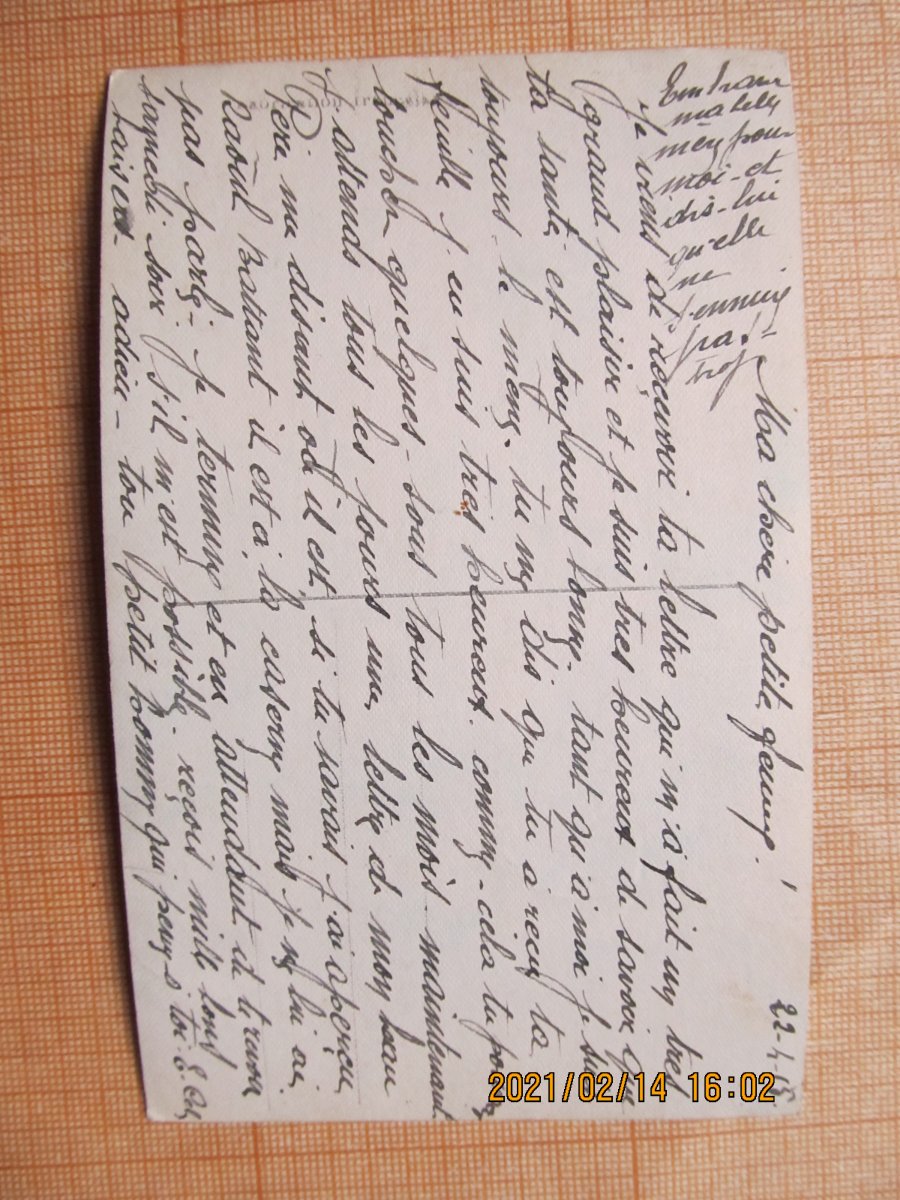 22-1-15
Ma chère petite femme.
Je viens de reçevoir ta lettre qui m'a fait un tres
grand plaisir et je suis tres heureux de savoir que
ta santé est toujours bonne tant qu'a moi je suis
toujours le meme. tu me dis que tu a reçu ta
feuille j'en suis tres heureux. comme cela tu pourras
toucher quelques sous tous les mois maintenant
J'attends tous les jours une lettre de mon beau
Père me disant où il est. si tu savais j'ai aperçu
Raoûl Bastant il est a la caserne mais je ne lui ai
pas parlé. je termine et en attendant de te revoir
samedi soir s'il m'est possible. reçois mille bons
baisers. adieu - ton petit homme qui pense a toi. E.
Embrasse
ma belle
mère pour
moi et
dis-lui
qu'elle
ne
s'ennuie
pas
trop
2021/02/14 16:02